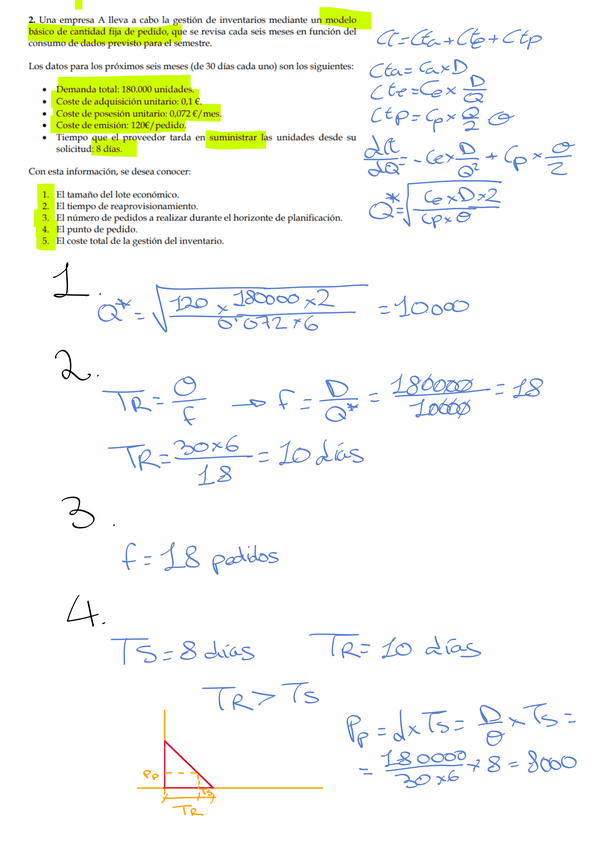 2. Una empresa A lleva a cabo la gestión de inventarios mediante un modelo
básico de cantidad fija de pedido, que se revisa cada seis meses en función del
consumo de dados previsto para el semestre.
Los datos para los próximos seis meses (de 30 días cada uno) son los siguientes:
• Demanda total: 180.000 unidades.
• Coste de adquisición unitario: 0,1 €.
• Coste de posesión unitario: 0,072 €/mes.
• Coste de emisión: 120€/pedido.
• Tiempo que el proveedor tarda en suministrar las unidades desde su
solicitud: 8 días.
Con esta información, se desea conocer:
1. El tamaño del lote económico.
2. El tiempo de reaprovisionamiento.
3. El número de pedidos a realizar durante el horizonte de planificación.
4. El punto de pedido.
5. El coste total de la gestión del inventario.
Ct = Cta + Cte + Ctp
Cta = Ca x D
Cte = Ce x D/Q
Ctp = Cp x Q/2 θ
dCt/dQ = - Ce x D/Q² + Cp x θ/2
Q* = √(Ce x D x 2 / Cp x θ)
1.
Q* = √(120 x 180000 x 2 / 0'072 * 6) = 10000
2.
TR = θ/f → f = D/Q* = 180000/10000 = 18
TR = 30x6/18 = 10 días
3.
f = 18 pedidos
4.
TS = 8 días TR = 10 días
TR > TS
Pp = d x TS = D/θ x TS =
= 180000/30x6 * 8 = 8000
Pp
TS
TR